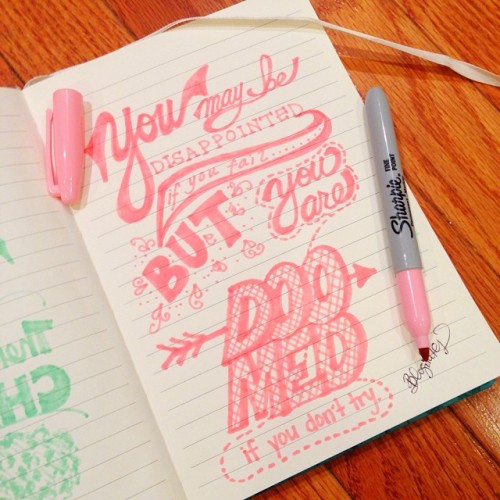 You may be
DISAPPOINTED
if you fail....
BUT you
are
DOO
MED
if you don't try.
Sharpie.
FINE POINT
CH